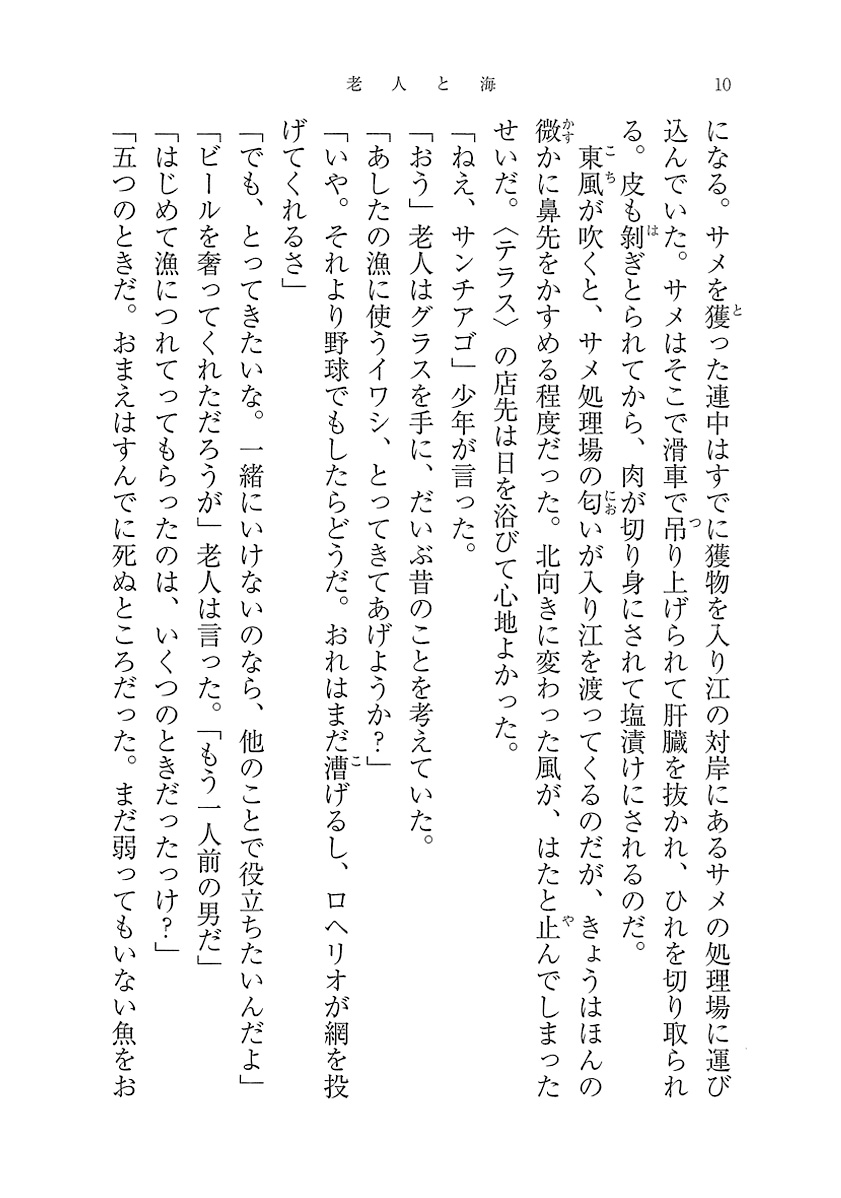 老人と海
10
になる。サメを獲った連中はすでに獲物を入り江の対岸にあるサメの処理場に運び
込んでいた。サメはそこで滑車で吊り上げられて肝臓を抜かれ、ひれを切り取られ
る。皮も剝ぎとられてから、肉が切り身にされて塩漬けにされるのだ。
東風が吹くと、サメ処理場の匂いが入り江を渡ってくるのだが、きょうはほんの
微かに鼻先をかすめる程度だった。北向きに変わった風が、はたと止んでしまった
せいだ。〈テラス〉の店先は日を浴びて心地よかった。
「ねえ、サンチアゴ」少年が言った。
「おう」老人はグラスを手に、だいぶ昔のことを考えていた。
「あしたの漁に使うイワシ、とってきてあげようか?」
「いや。それより野球でもしたらどうだ。おれはまだ漕げるし、ロヘリオが網を投
げてくれるさ」
「でも、とってきたいな。一緒にいけないのなら、他のことで役立ちたいんだよ」
「ビールを奢ってくれただろうが」老人は言った。「もう一人前の男だ」
「はじめて漁につれてってもらったのは、いくつのときだったっけ?」
「五つのときだ。おまえはすんでに死ぬところだった。まだ弱ってもいない魚をお